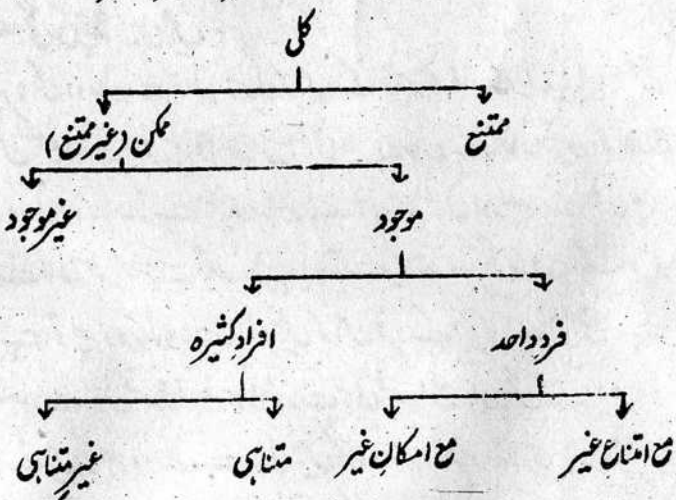 کلی
ممتنع ممکن (غیر ممتنع)
موجود غیر موجود
فردِ واحد افرادِ کثیرہ
مع امتناع غیر مع امکانِ غیر متناہی غیر متناہی